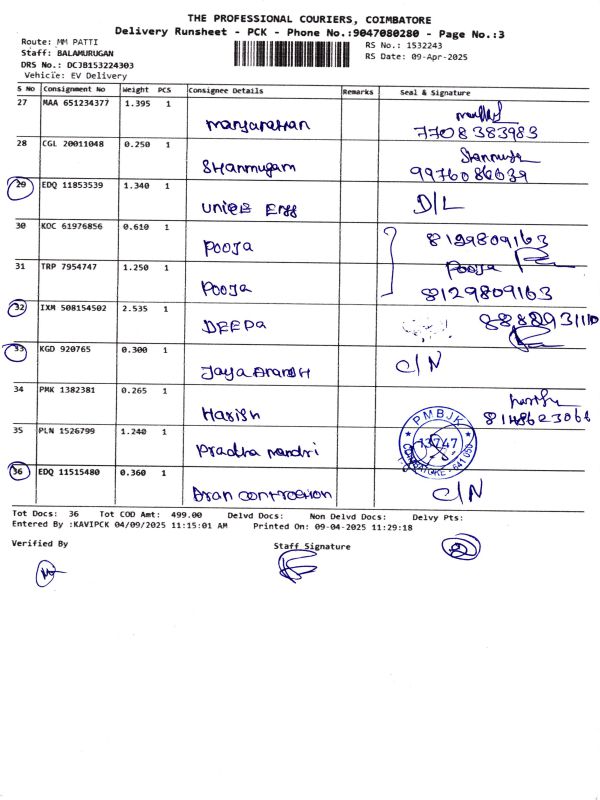 THE PROFESSIONAL COURIERS, COIMBATORE
Delivery Runsheet - PCK - Phone No.:9047080280 - Page No.:3
Route: MM PATTI
RS No.: 1532243
Staff: BALAMURUGAN
RS Date: 09-Apr-2025
DRS No.: DCJB153224303
Vehicle: EV Delivery
S No Consignment No Weight PCS Consignee Details Remarks Seal & Signature
27 MAA 651234377 1.395 1 Manjanathan 7708383983
28 CGL 20011048 0.250 1 Shanmugam 9976086639
29 EDQ 11853539 1.340 1 D/L
30 KOC 61976856 0.610 1 Pooja 8129809163
Pooja
31 TRP 7954747 1.250 1 Pooja 8129809163
32 IXM 508154502 2.535 1 DEEPA
33 KGD 920765 0.300 1 C/N
34 PMK 1382381 0.265 1 Harish
35 PLN 1526799 1.240 1 PMBJK 13747
36 EDQ 11515480 0.360 1 C/N
Tot Docs: 36 Tot COD Amt: 499.00 Delvd Docs: Non Delvd Docs: Delvy Pts:
Entered By :KAVIPCK 04/09/2025 11:15:01 AM Printed On: 09-04-2025 11:29:18
Verified By Staff Signature